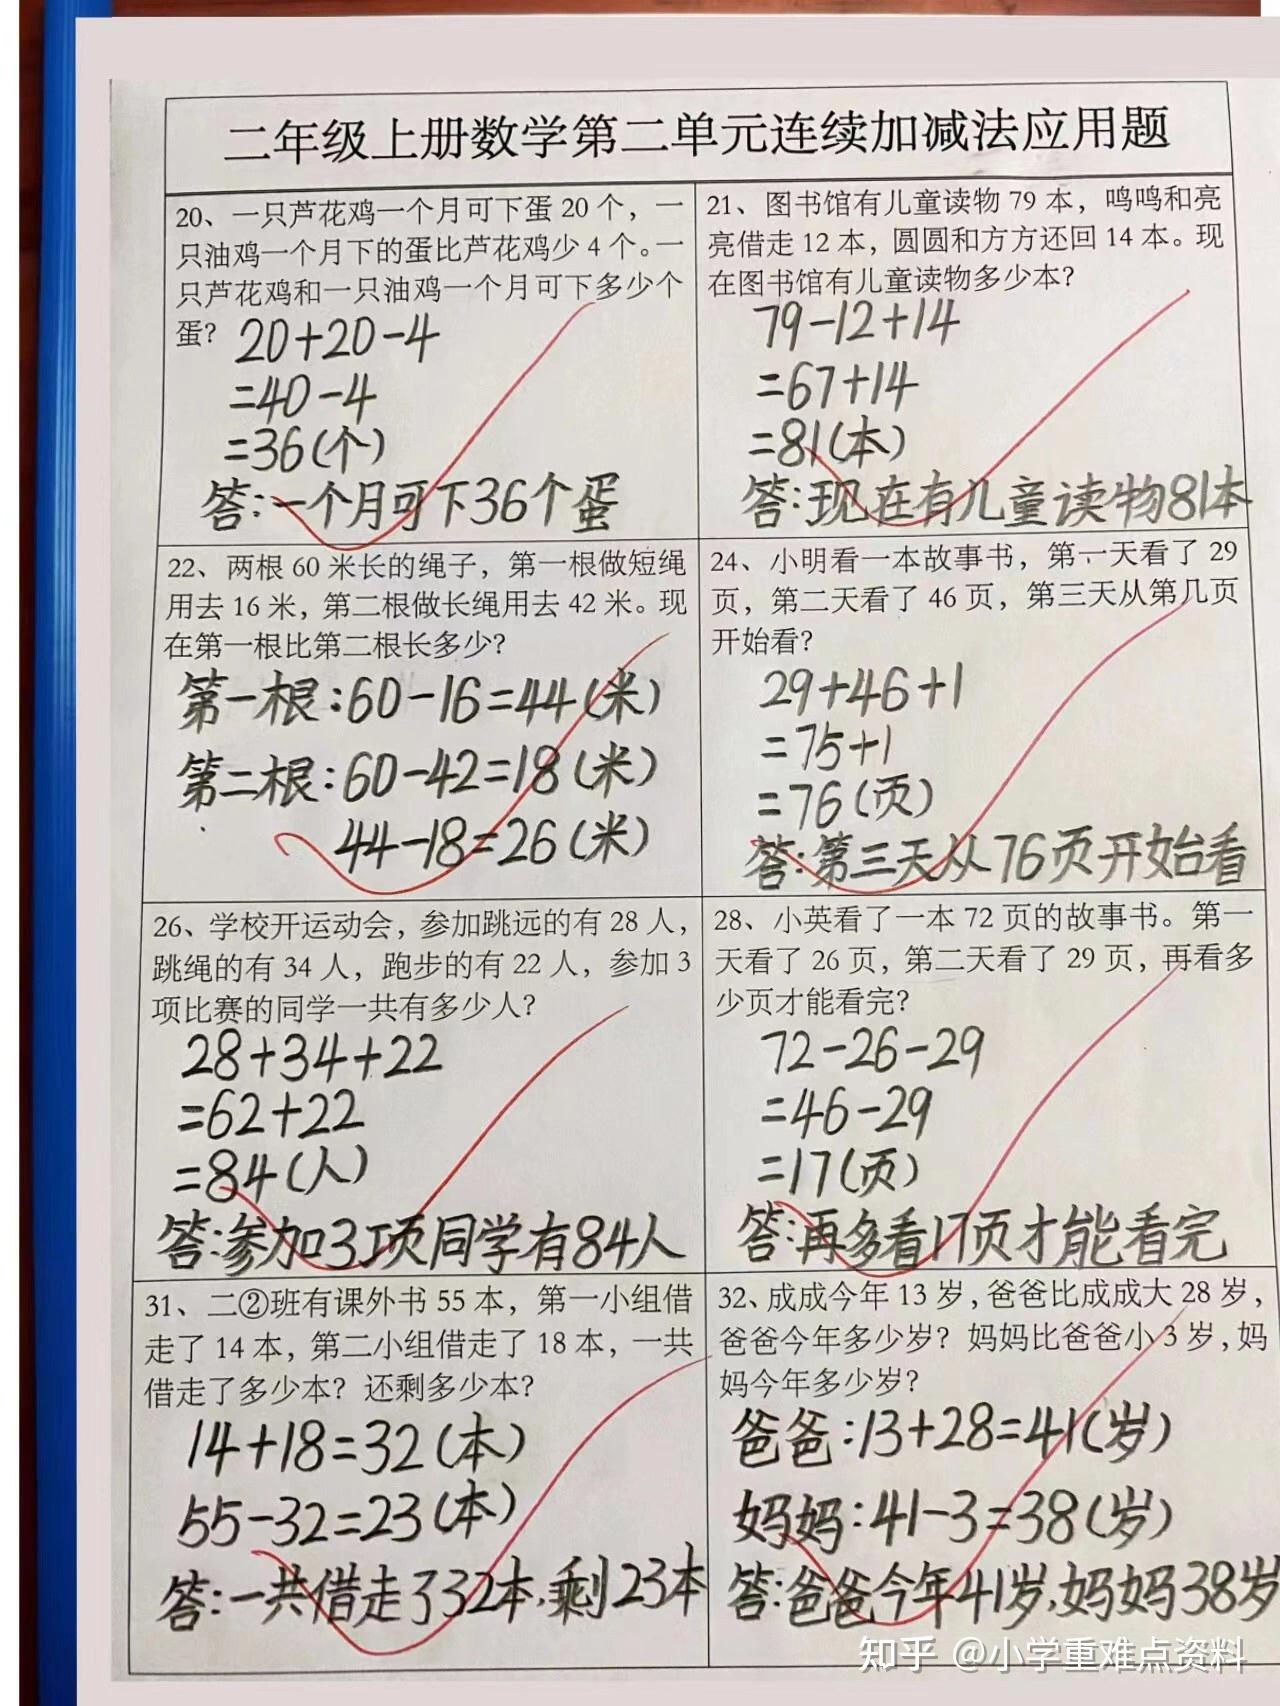 二年级上册数学第二单元连续加减法应用题
20、一只芦花鸡一个月可下蛋 20 个，一
只油鸡一个月下的蛋比芦花鸡少 4 个。一
只芦花鸡和一只油鸡一个月可下多少个
蛋？
20+20-4
=40-4
=36(个)
答:一个月可下36个蛋
21、图书馆有儿童读物 79 本，鸣鸣和亮
亮借走 12 本，圆圆和方方还回 14 本。现
在图书馆有儿童读物多少本？
79-12+14
=67+14
=81(本)
答:现在有儿童读物81本
22、两根 60 米长的绳子，第一根做短绳
用去 16 米，第二根做长绳用去 42 米。现
在第一根比第二根长多少？
第一根:60-16=44(米)
第二根:60-42=18(米)
44-18=26(米)
24、小明看一本故事书，第一天看了 29
页，第二天看了 46 页，第三天从第几页
开始看？
29+46+1
=75+1
=76(页)
答:第三天从76页开始看
26、学校开运动会，参加跳远的有 28 人，
跳绳的有 34 人，跑步的有 22 人，参加 3
项比赛的同学一共有多少人？
28+34+22
=62+22
=84(人)
答:参加3项同学有84人
28、小英看了一本 72 页的故事书。第一
天看了 26 页，第二天看了 29 页，再看多
少页才能看完？
72-26-29
=46-29
=17(页)
答:再多看17页才能看完
31、二②班有课外书 55 本，第一小组借
走了 14 本，第二小组借走了 18 本，一共
借走了多少本？还剩多少本？
14+18=32(本)
55-32=23(本)
答:一共借走了32本,剩23本
32、成成今年 13 岁，爸爸比成成大 28 岁，
爸爸今年多少岁？妈妈比爸爸小 3 岁，妈
妈今年多少岁？
爸爸:13+28=41(岁)
妈妈:41-3=38(岁)
答:爸爸今年41岁,妈妈38岁
知乎 @小学重难点资料